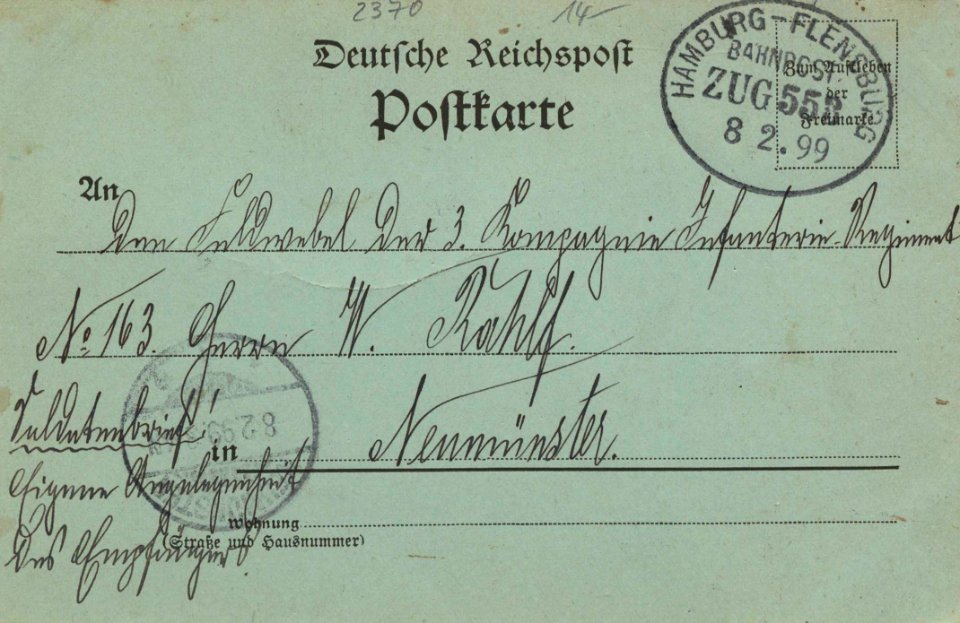 2370 14-
Deutsche Reichspost
Postkarte
HAMBURG-FLENSBURG
BAHNPOST
ZUG 555
8 2.99
Zum Aufkleben
der
Freimarke
An
den Feldwebel der 3. Kompagnie Infanterie-Regiment
No 163. Herrn W. Rahlf.
Soldatenbrief!
in Neumünster.
Eigene Angelegenheit
des Empfängers
8.2.99
Wohnung
(Straße und Hausnummer)